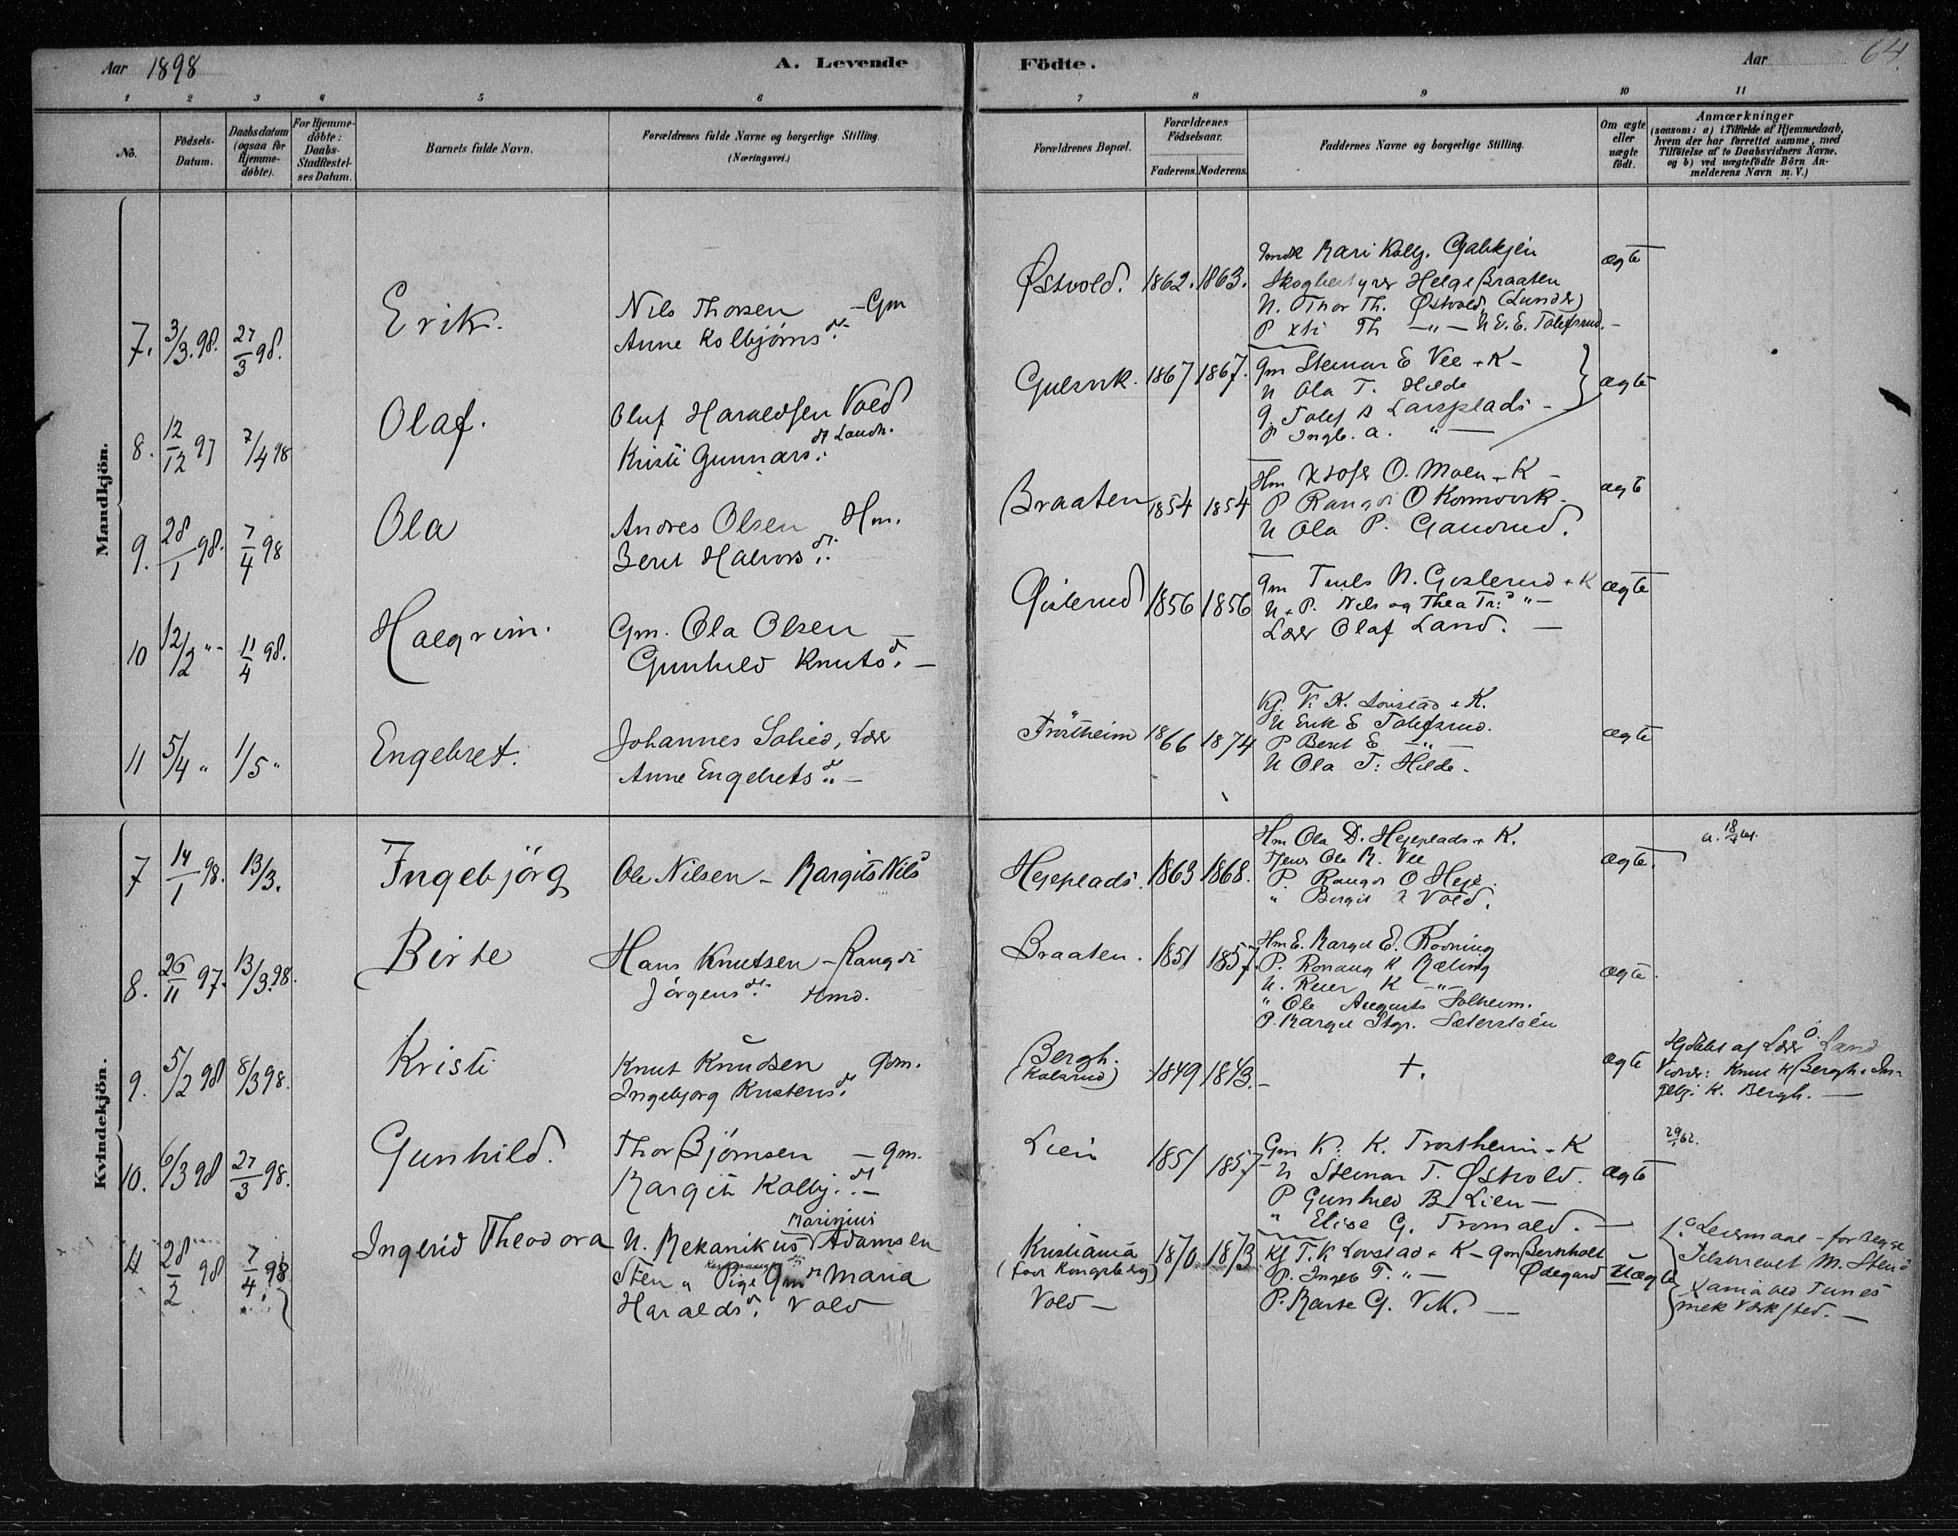 Aar 1898
A. Levende
Födte.
Aar
64
1 2 3 4 5 6 7 8 9 10 11
No.
Födsels-
Datum.
Daabsdatum
(ogsaa för
Hjemme-
döbte).
For Hjemme-
döbte:
Daabs-
Stadfestel-
ses Datum.
Barnets fulde Navn.
Forældrenes fulde Navne og borgerlige Stilling
(Næringsvei.)
Forældrenes Bopæl.
Forældrenes
Födselsaar.
Faderens. Moderens.
Faddernes Navne og borgerlige Stilling.
Om ægte
eller
uægte
födt.
Anmærkninger
(saasom: a) i Tilfælde af Hjemmedaab,
hvem der har forrettet samme, med
Tilföielse af to Daabsvidners Navne.
og b) ved uægtefödte Börn An-
melderens Navn m. V.)
Mandkjön.
7. 3/3. 98. 27/3 98. Erik.
Nils Thorsen — Gm
Anne Kolbjørns d.
Østvold. 1862. 1863.
Mari Kolbj. Gulskjen
Skogbestyrer Helge Braaten
U. Thor Th. Østvold (Lunder)
P Xti Th —„— U E. E. Tolefsrud. —
ægte
8. 12/12 97 7/4 98 Olaf.
Oluf Haraldsen Vold
Kristi Gunnars d. Landh.
Gulsvik. 1867 1867.
Gm Steinar E Vee + K —
U Ola T. Hilde
G. Tolef B Larsplads —
P Ingb. A. „ —
ægte
9. 28/1 98. 7/4 98 Ola
Andres Olsen Hm.
Berit Halvors d.
Braaten 1854 1854
Hm Xtofer O. Moen + K —
P Rangdi O Kornvork.
U Ola P. Gandrud.
ægte
10 12/2 „ - 11/4 98. Halgrim.
Gm. Ola Olsen —
Gunhild Knuts d. —
Gislerud 1856 1856
Gm Truls N. Gislerud + K
U + P. Nils og Thea Tr: „ —
Lær Olaf Land. —
ægte
11 5/4 „ 1/5 „ Engebret.
Johannes Solied, Lær
Anne Engebrets d. —
Trostheim 1866 1874
Kj. T. K. Lovstad + K.
U Erik E Tolefsrud.
P Berit E —„—
U Ola T: Hilde.
ægte
Kvindekjön.
7 14/1 98. 13/3. Ingebjörg
Ole Nilsen — Margit Nils d
Hejeplads. 1863 1868.
Hm Ola D. Hejeplads + K.
Tjener Ole M. Vee
P. Rangdi O Heje.
„ Bergit A Vold.
ægte.
8. 26/11 97. 13/3. 98. Birte
Hans Knutsen — Rangdi
Jörgens d. Hmd.
Braaten. 1851 1857.
Hm E. Margit E. Rovning
P. Ronaug K Mæling
U. Reier K „ —
„ Ole Augusts Solheim.
P. Margit Stgr. Sæterstöen
ægte.
9. 5/2 98 8/3 98. Kristi
Knut Knudsen Gm.
Ingebjorg Kristens d.
Bergh.
(Kolsrud)
1849 1843. —
+.
ægte
Hjdöbt af Lær O Land
Vidner: Knut K Bergh + In-
gebj: K. Bergh. —
10. 6/3 98 27/3 98. Gunhild.
Thor Bjørnsen — Gm.
Margit Kolbj. d. —
Lien 1851 1857
Gm K. K. Trostheim + K
U Steinar T. Østvold.
P Gunhild B Lien —
„ Elise G. Tromald. —
ægte
29/1 62.
11 28/2 98 7/4 98 Ingerid Theodora
U. Mekanikus Marinius Adamsen
Sten „ Pige Gm d Maria
Haralds d. Vold
Kristiania
(före Kongsberg)
Vold —
1870. 1873.
Kj T. K Lovstad + K — Gm Bernholt
P. Ingeb T. „ — Ødegaard
P. Marte G. Vik. —
Uægte
Leiermaal — for begge
Tilskrevet M. Sten
Xania ved Tunes
mek Værksted. —